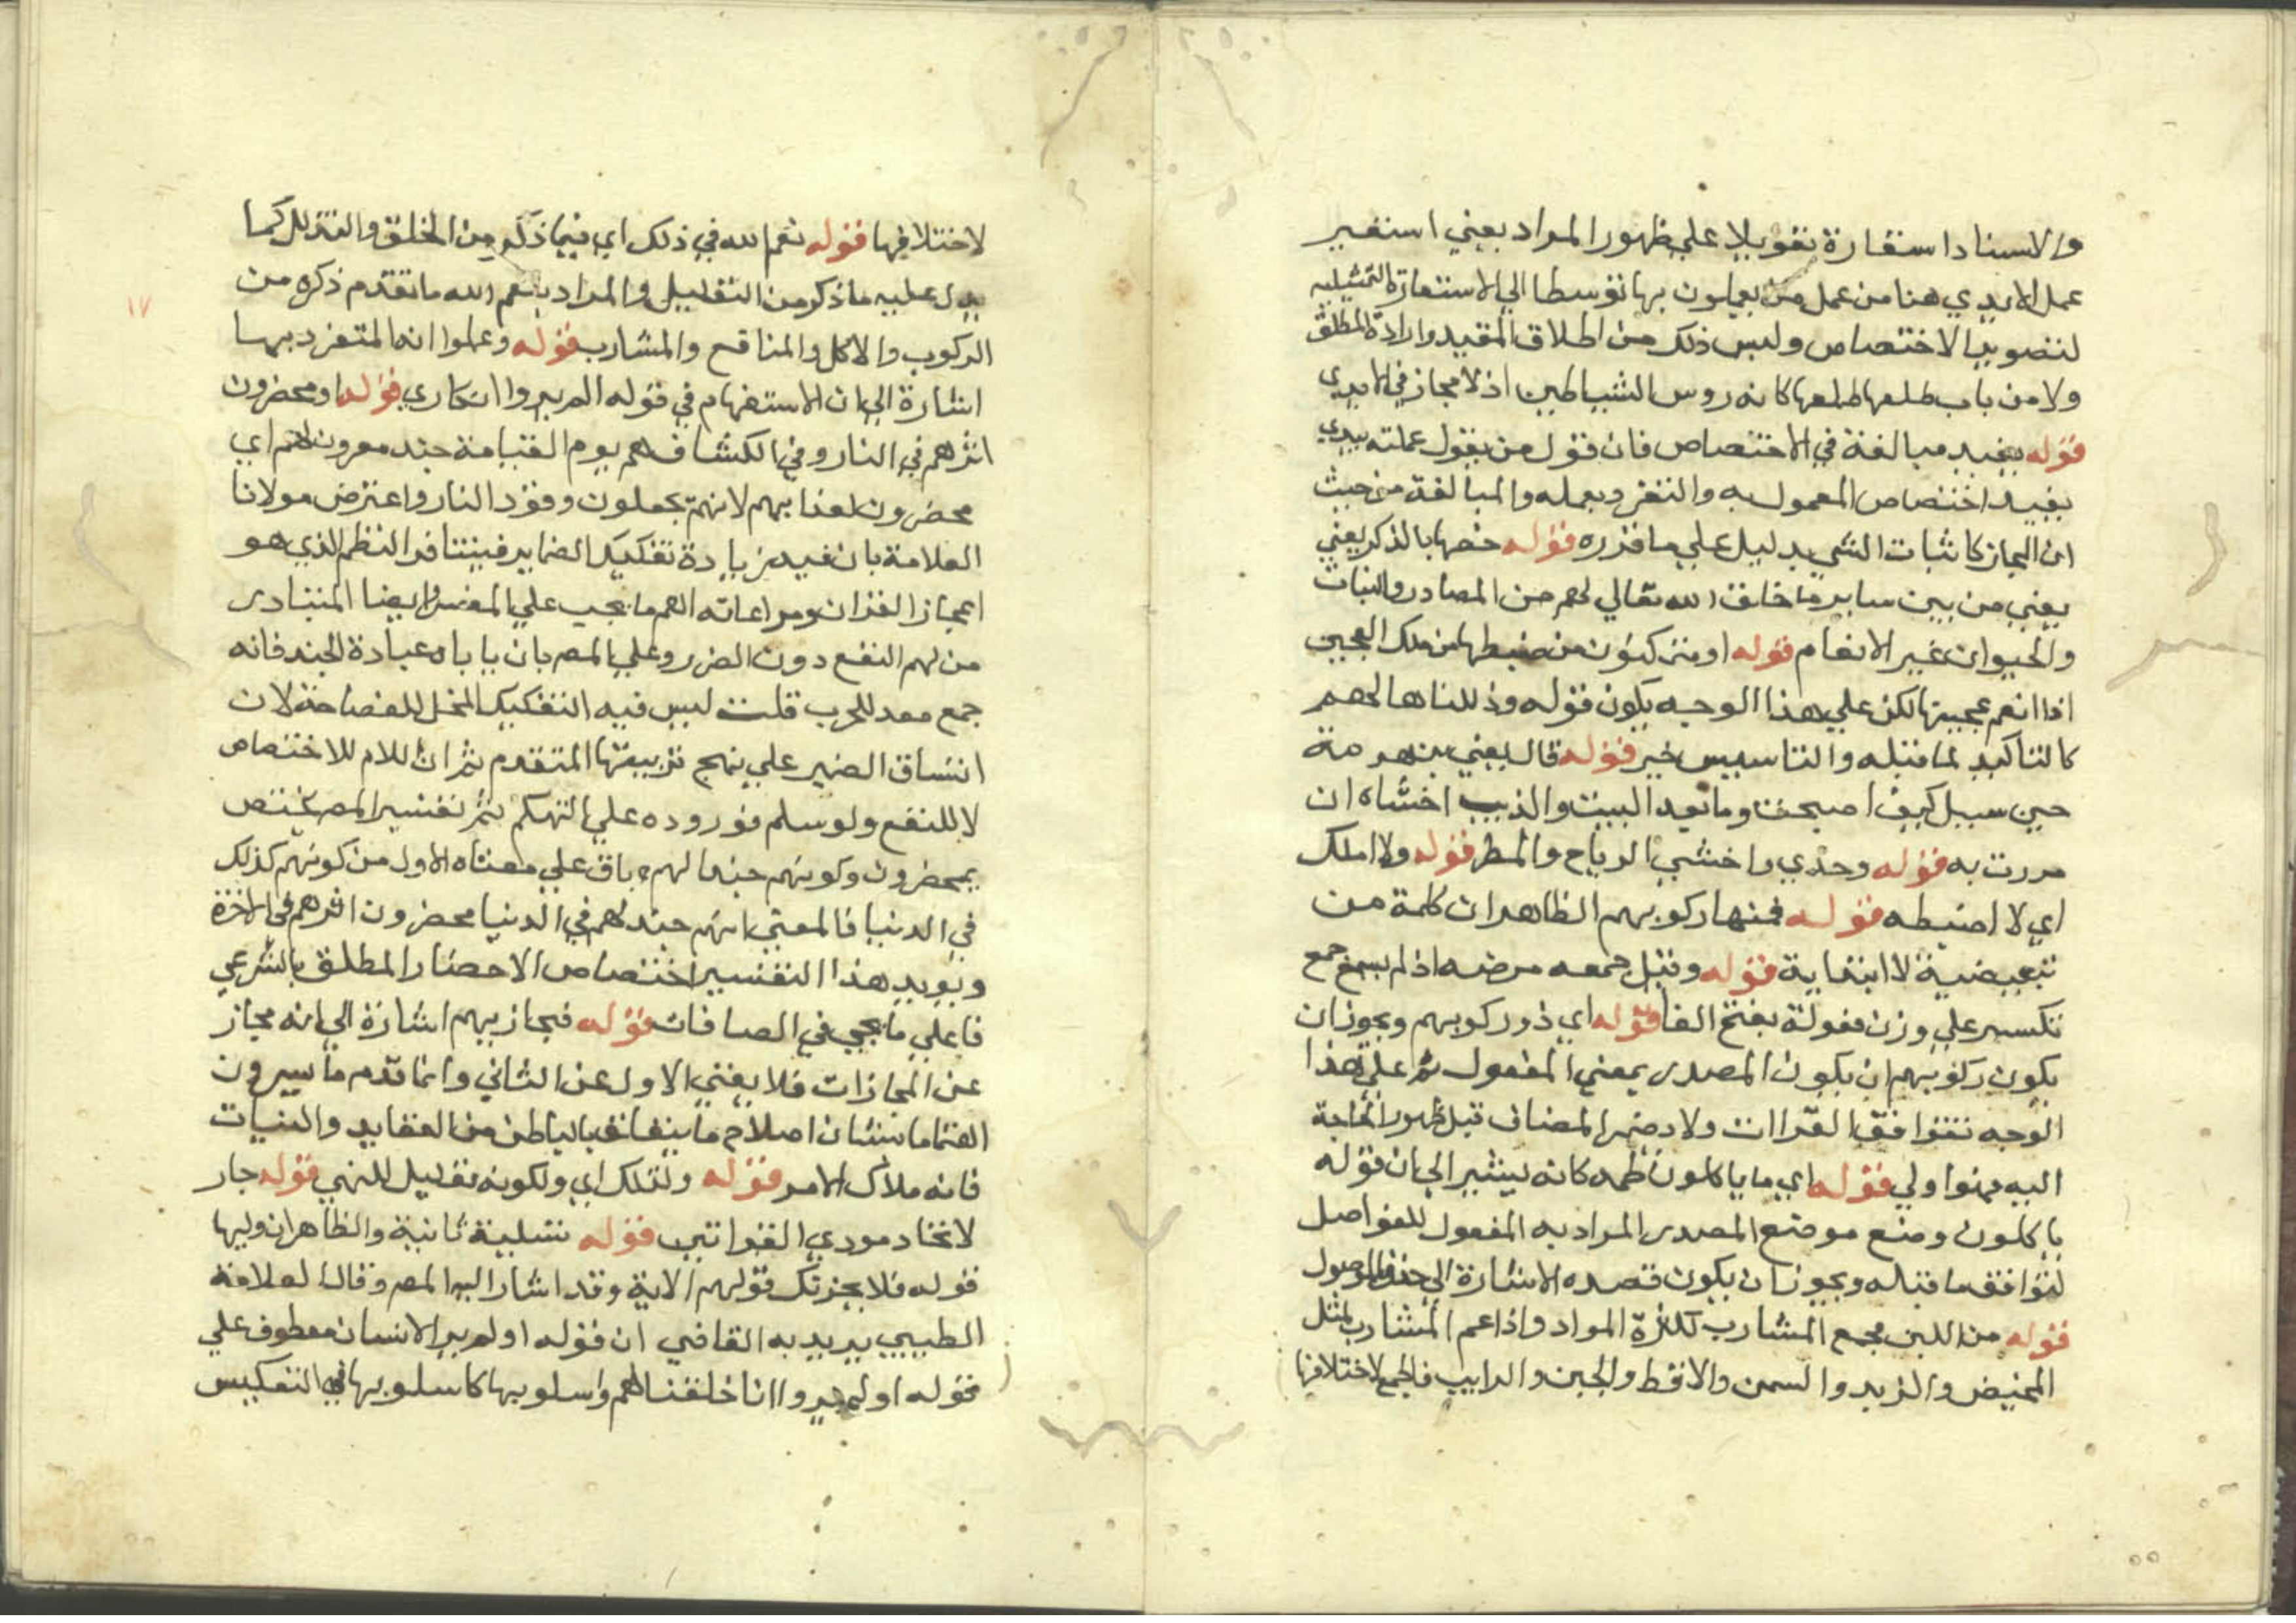 والاسناد استعارة تعويلا علي ظهور المراد يعني استعير
عمل الايدي هنا من عمل من يعملون بها توسطا الي الاستعارة التمثيليه
لتصوير الاختصاص وليس ذلك من اطلاق المقيد وارادة المطلق
ولا من باب طلعها طلعها كانه روس الشياطين اذ لا مجاز في الايدي
قوله يفيد مبالغة في الاختصاص فان قول من يقول عملته بيدي
يفيد اختصاص المعمول به والتفرد بعمله والمبالغة من حيث
ان المجاز كاثبات الشي بدليل علي ما قدره قوله خصها بالذكر يعني
يعني من بين ساير ما خلق الله تعالي لهم من المصادر والنبات
والحيوان غير الانعام قوله او متملكون من ضبطها من ملك العجين
اذا انعم عجينها لكن علي هذا الوجه يكون قوله وذللناها لهم
كالتاكيد لما قبله والتاسيس خير قوله قال يعني بن هرمة
حين سيل كيف اصبحت وما بعد البيت والذيب اخشاه ان
مررت به قوله وحدي واخشي الرياح والمطر قوله ولا املك
اي لا اضبطه قوله فمنها ركوبهم الظاهر ان كلمة من
تبعيضية لا ابتدايية قوله وقيل جمعه مرضه اذ لم يسمع جمع
تكسير علي وزن فعولة بفتح الفا قوله اي ذو ركوبهم ويجوز ان
يكون ركوبهم ان يكون المصدر بمعني المفعول ثم علي هذا
الوجه تتوافق القراات ولا يضمر المضاف قبل ظهور الحاجة
اليه فهوا ولي قوله اي ما ياكلون لحمه كانه يشير الي ان قوله
ياكلون وضع موضع المصدر المراد به المفعول للفواصل
لتوافق ما قبله ويجوز ان يكون قصده الاشارة الي حذف الموصول
قوله من اللبن مجمع المشارب لكثرة المواد واذا عم المشارب لمثل
المخيض والزبد والسمن والاقط والجبن والرايب فالجمع لاختلافها
١٧
لاختلافها قوله نعم الله في ذلك اي فيما ذكر من الخلق والتذليل كما
يدل عليه ما ذكر من التعليل والمراد بنعم الله ما تقدم ذكره من
الركوب والاكل والمنافع والمشارب قوله وعلموا انه المتفرد بها
اشارة الي ان الاستفهام في قوله الم يروا انكاري قوله او محضرون
اثرهم في النار وفي الكشاف هم يوم القيامة جند معدون لهم اي
محضرون لعذابهم لانهم يجعلون وقود النار واعترض مولانا
العلامة بان فيه زيادة تفكيك الضماير فيتنافر النظم الذي هو
اعجاز القران ومراعاته اهم ما يجب علي المفسر وايضا المتبادر
من لهم النفع دون الضرر وعلي المص بان ياباه عبادة الجند فانه
جمع معد للحرب قلت ليس فيه التفكيك المخل للفصاحة لان
انتساق الضمير علي نهج تربيعها المتقدم ثم ان اللام للاختصاص
لا للنفع ولو سلم فوروده علي التهكم ثم تفسير المص مختص
بمحضرون وكونهم جندا لهم باق علي معناه الاول من كونهم كذلك
في الدنيا فالمعني انهم جند لهم في الدنيا محضرون اثرهم في الاخرة
ويويد هذا التفسير اختصاص الاحضار المطلق بالشر عي
فا علي ما يجي في الصافات قوله فيجازيهم اشارة الي انه مجاز
عن المجازات فلا يغني الاول عن الثاني وانما قدم ما يسرون
اهتماما بشان اصلاح ما يتعلق بالباطن من العقايد والنيات
فانه ملاك الامر قوله ولذلك اي ولكونه تعليل للنهي قوله جار
لاتحاد مودي القراتين قوله تسلية ثانية والظاهر ان وليها
قوله فلا يحزنك قولهم الاية وقد اشار اليه المص وقال العلامة
الطيبي يريد به القاضي ان قوله اولم ير الانسان معطوف علي
قوله اولم يروا انا خلقنا لهم واسلوبها كاسلوبها في التعكيس